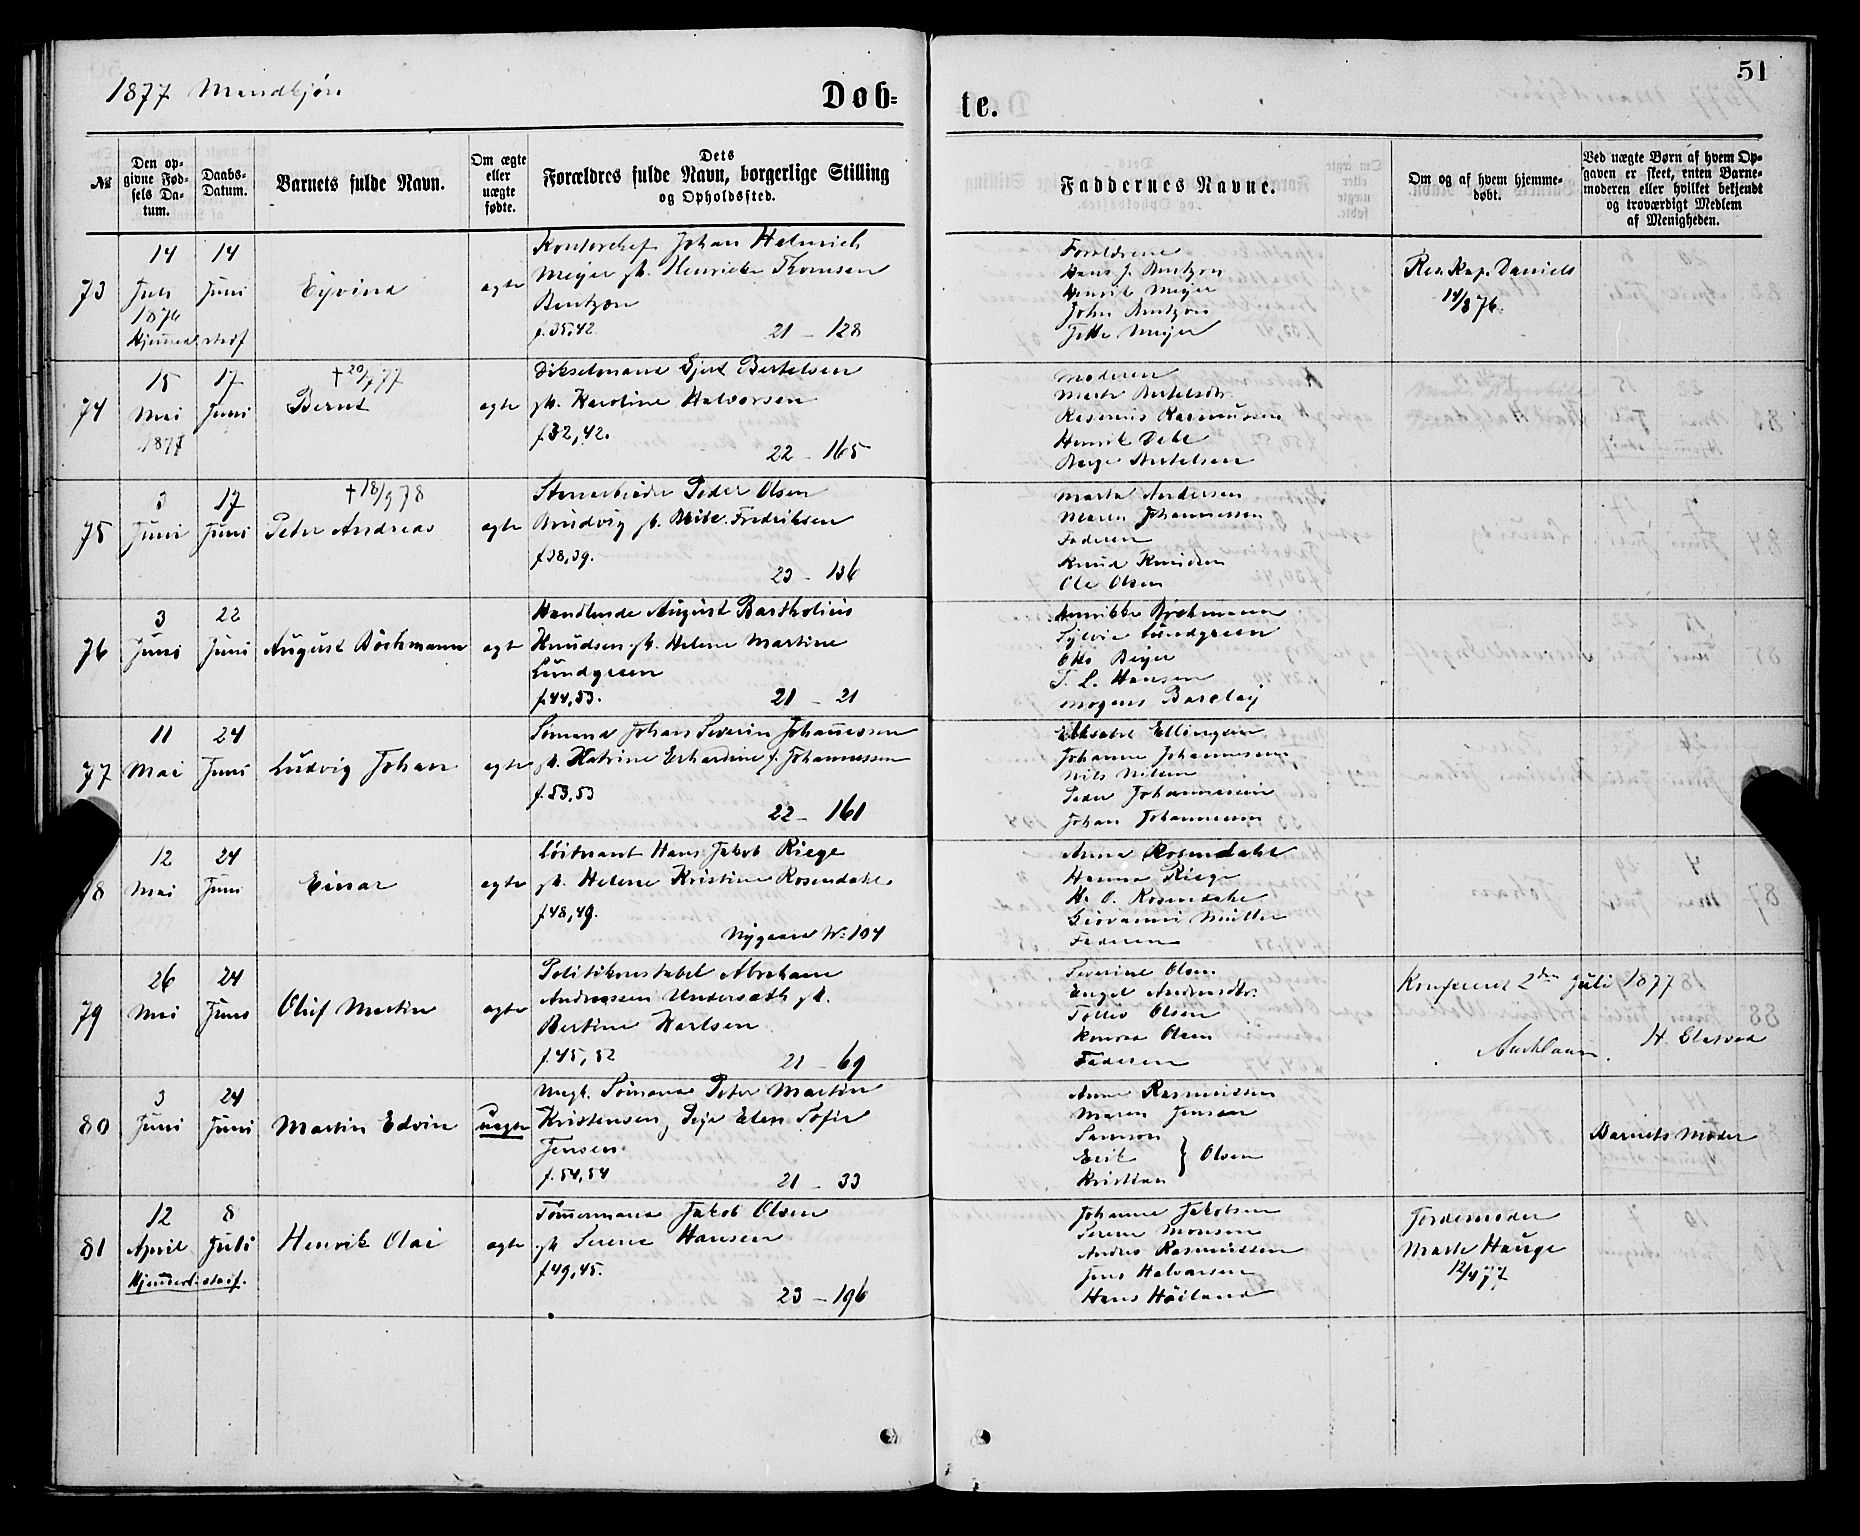 51
1877 Mandkjøn
Døb=
te.
№
Den opgivne Fødsels Datum.
Daabs-Datum.
Barnets fulde Navn.
Om ægte eller uægte fødte.
Dets Forældres fulde Navn, borgerlige Stilling og Opholdssted.
Faddernes Navne.
Om og af hvem hjemmedøbt.
Ved uægte Børn af hvem Opgaven er skeet, enten Barnemoderen eller hvilket bekjendt og troværdigt Medlem af Menigheden.
73
14 Juli 1876
Hjemmedøbt
14 Juni
Eyvind
ægte
Kontorchef Johan Heinrich
Meyer &
Henricke Thomsen
Bentzon
f. 35, 42.
21 - 128
Forældrene
Hans J. Bentzon
Henrik Meyer
John Bentzon
Jette Meyer
Res. Kap. Daniels
14/8 76.
74
15 Mai 1877
17 Juni
† 20/7 77
Bernt
ægte
Gjert Bertelsen
Karoline Halvorsen
f. 32, 42.
22 - 165
Moderen
Marte Bertelsdtr.
Rasmus Rasmussen
Henrik Dale
Børge Bertelsen
75
3 Juni
17 Juni
† 18/9 78
Peder Andreas
ægte
Stenarbeider Peder Olsen
Brudvig
Fredriksen
f. 38, 39.
23 - 136
Marta Andersen
Maren Johannessen
Faderen
Knud Knudsen
Ole Olsen
76
3 Juni
22 Juni
August Böckmann
ægte
Handlende August Bartholius
Knudsen
Helene Martine
Lundgreen
f. 44, 53.
21 - 21
Henrikke Böckmann
Sylvie Lundgreen
Otto Beyer
T. L. Hansen
Mogens Barclay
77
11 Mai
24 Juni
Ludvig Johan
ægte
Sømand Johan Severin Johannessen
Katrine Erhardine f. Johannessen
f. 53, 53
22 - 161
Elisabet Ellingsen
Johanne Johannessen
Nils Nilsen
Peder Johannessen
Johan Johannessen
78
12 Mai
24 Juni
Einar
ægte
Løitnant Hans Jakob Riege
Helene Kristine Rosendahl
f. 48, 49.
Nygaard № 104
Anna Rosendahl
Hanna Riege
H. O. Rosendahl
Giovanni Müller
Faderen
79
26 Mai
24 Juni
Oluf Martin
ægte
Politikonstabel Abraham
Andreassen Undersæth
Bertine Karlsen
f. 45, 52
21 - 69
Severine Olsen
Engel Andersdtr.
Tollev Olsen
Konrad Olsen
Faderen
Konfereret 2den Juli 1877
80
3 Juni
24 Juni
Martin Edvin
uægte
Ungk. Sømand Peter Martin
Kristensen, Pige Elen Sofie
Jensen
f. 54, 54
21 - 33
Anne Rasmussen
Maren Jensen
Samson
Erik } Olsen
Kristian
Barnets Moder
81
12 April
Hjemmedøbt
8 Juli
Henrik Olai
ægte
Tømmermand Jakob Olsen
Serene Hansen
f. 49, 45.
23 - 196
Johanne Jakobsen
Serene Monsen
Andres Rasmussen
Jens Halvorsen
Hans Høiland
Jordemoder
Marte Hauge
12/4 77